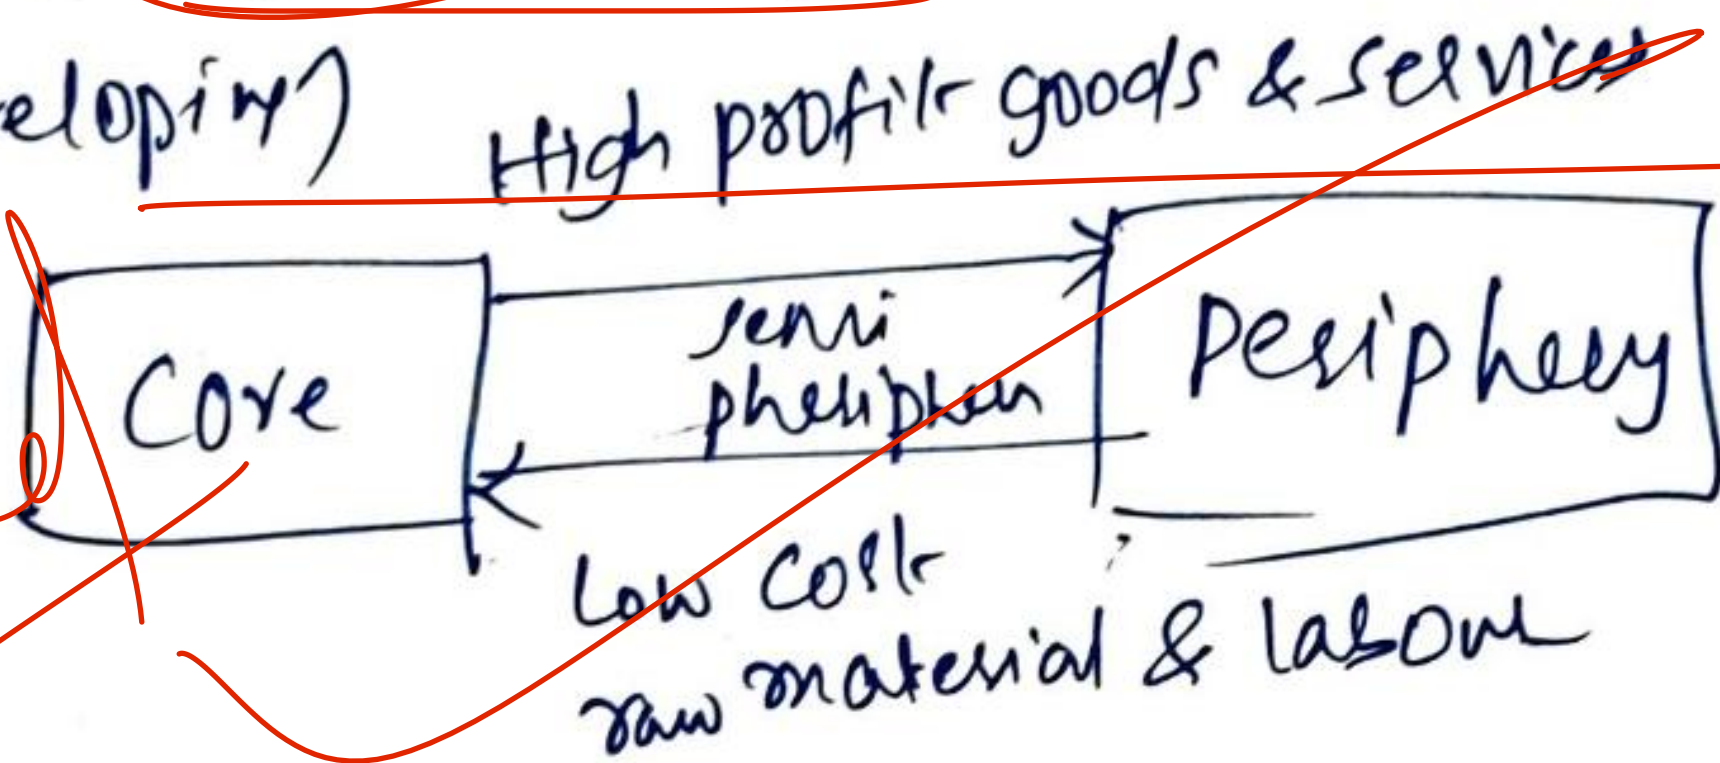 eloping)
High profit goods & services
Core
semi
Periphery
pheriphery
Low cost
raw material & labour